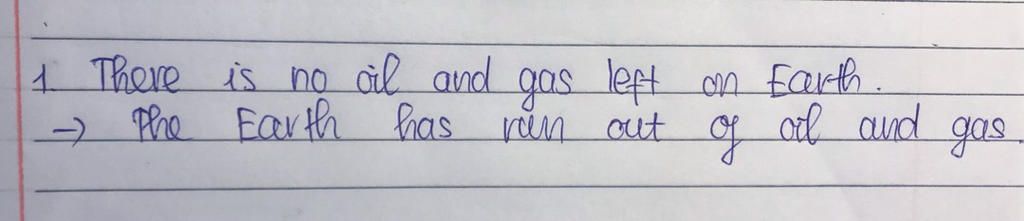 1. There is no oil and gas left on Earth.
→ The Earth has run out of oil and gas.